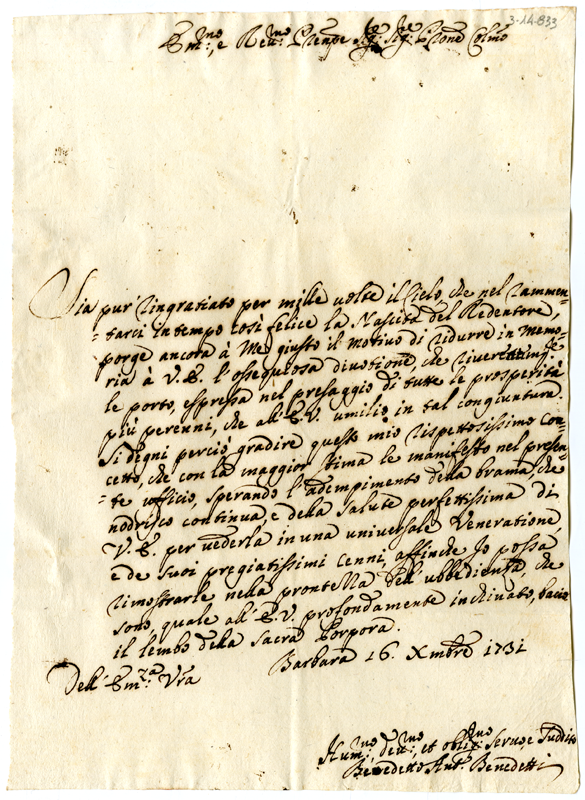 3-14-833
Em:mo, e Reu:mo Prenpe Sig:r Sig:re Prone Colmo
Sia pur' ringratiato per mille uolte il Cielo, che nel rammen=
=tarci in tempo così felice la Nascita del Redentore,
porge ancora à Me giusto il motiuo di ridurre in Memo=
ria à V. E. l'ossequiosa diuotione, che riuerentem:te
le porto, espressa nel presaggio di tutte le prosperità
più perenni, che all' E. V. umilio in tal congiuntura.
Si degni perciò gradire questo mio rispettosissimo Con=
cetto, che con la maggior stima le manifesto nel presen=
=te ufficio, sperando l'adempimento della brama, che
nodrisco continua, e della salute perfettissima di
V. E. per uederla in una uniuersale Veneratione,
e de suoi pregiatissimi Cenni, affinche Io possa
rimostrarle nella prontezza dell' ubbedienza, che
sono, quale all' E. V. profondamente inchinato, bacio
il lembo della Sacra Porpora.
Barbara 16. Xmbre 1731
Dell' Em:za Vra
Hum:mo, deu:mo, et obblig:mo Seruo, e Suddito
Benedetto Ant.o Benedetti